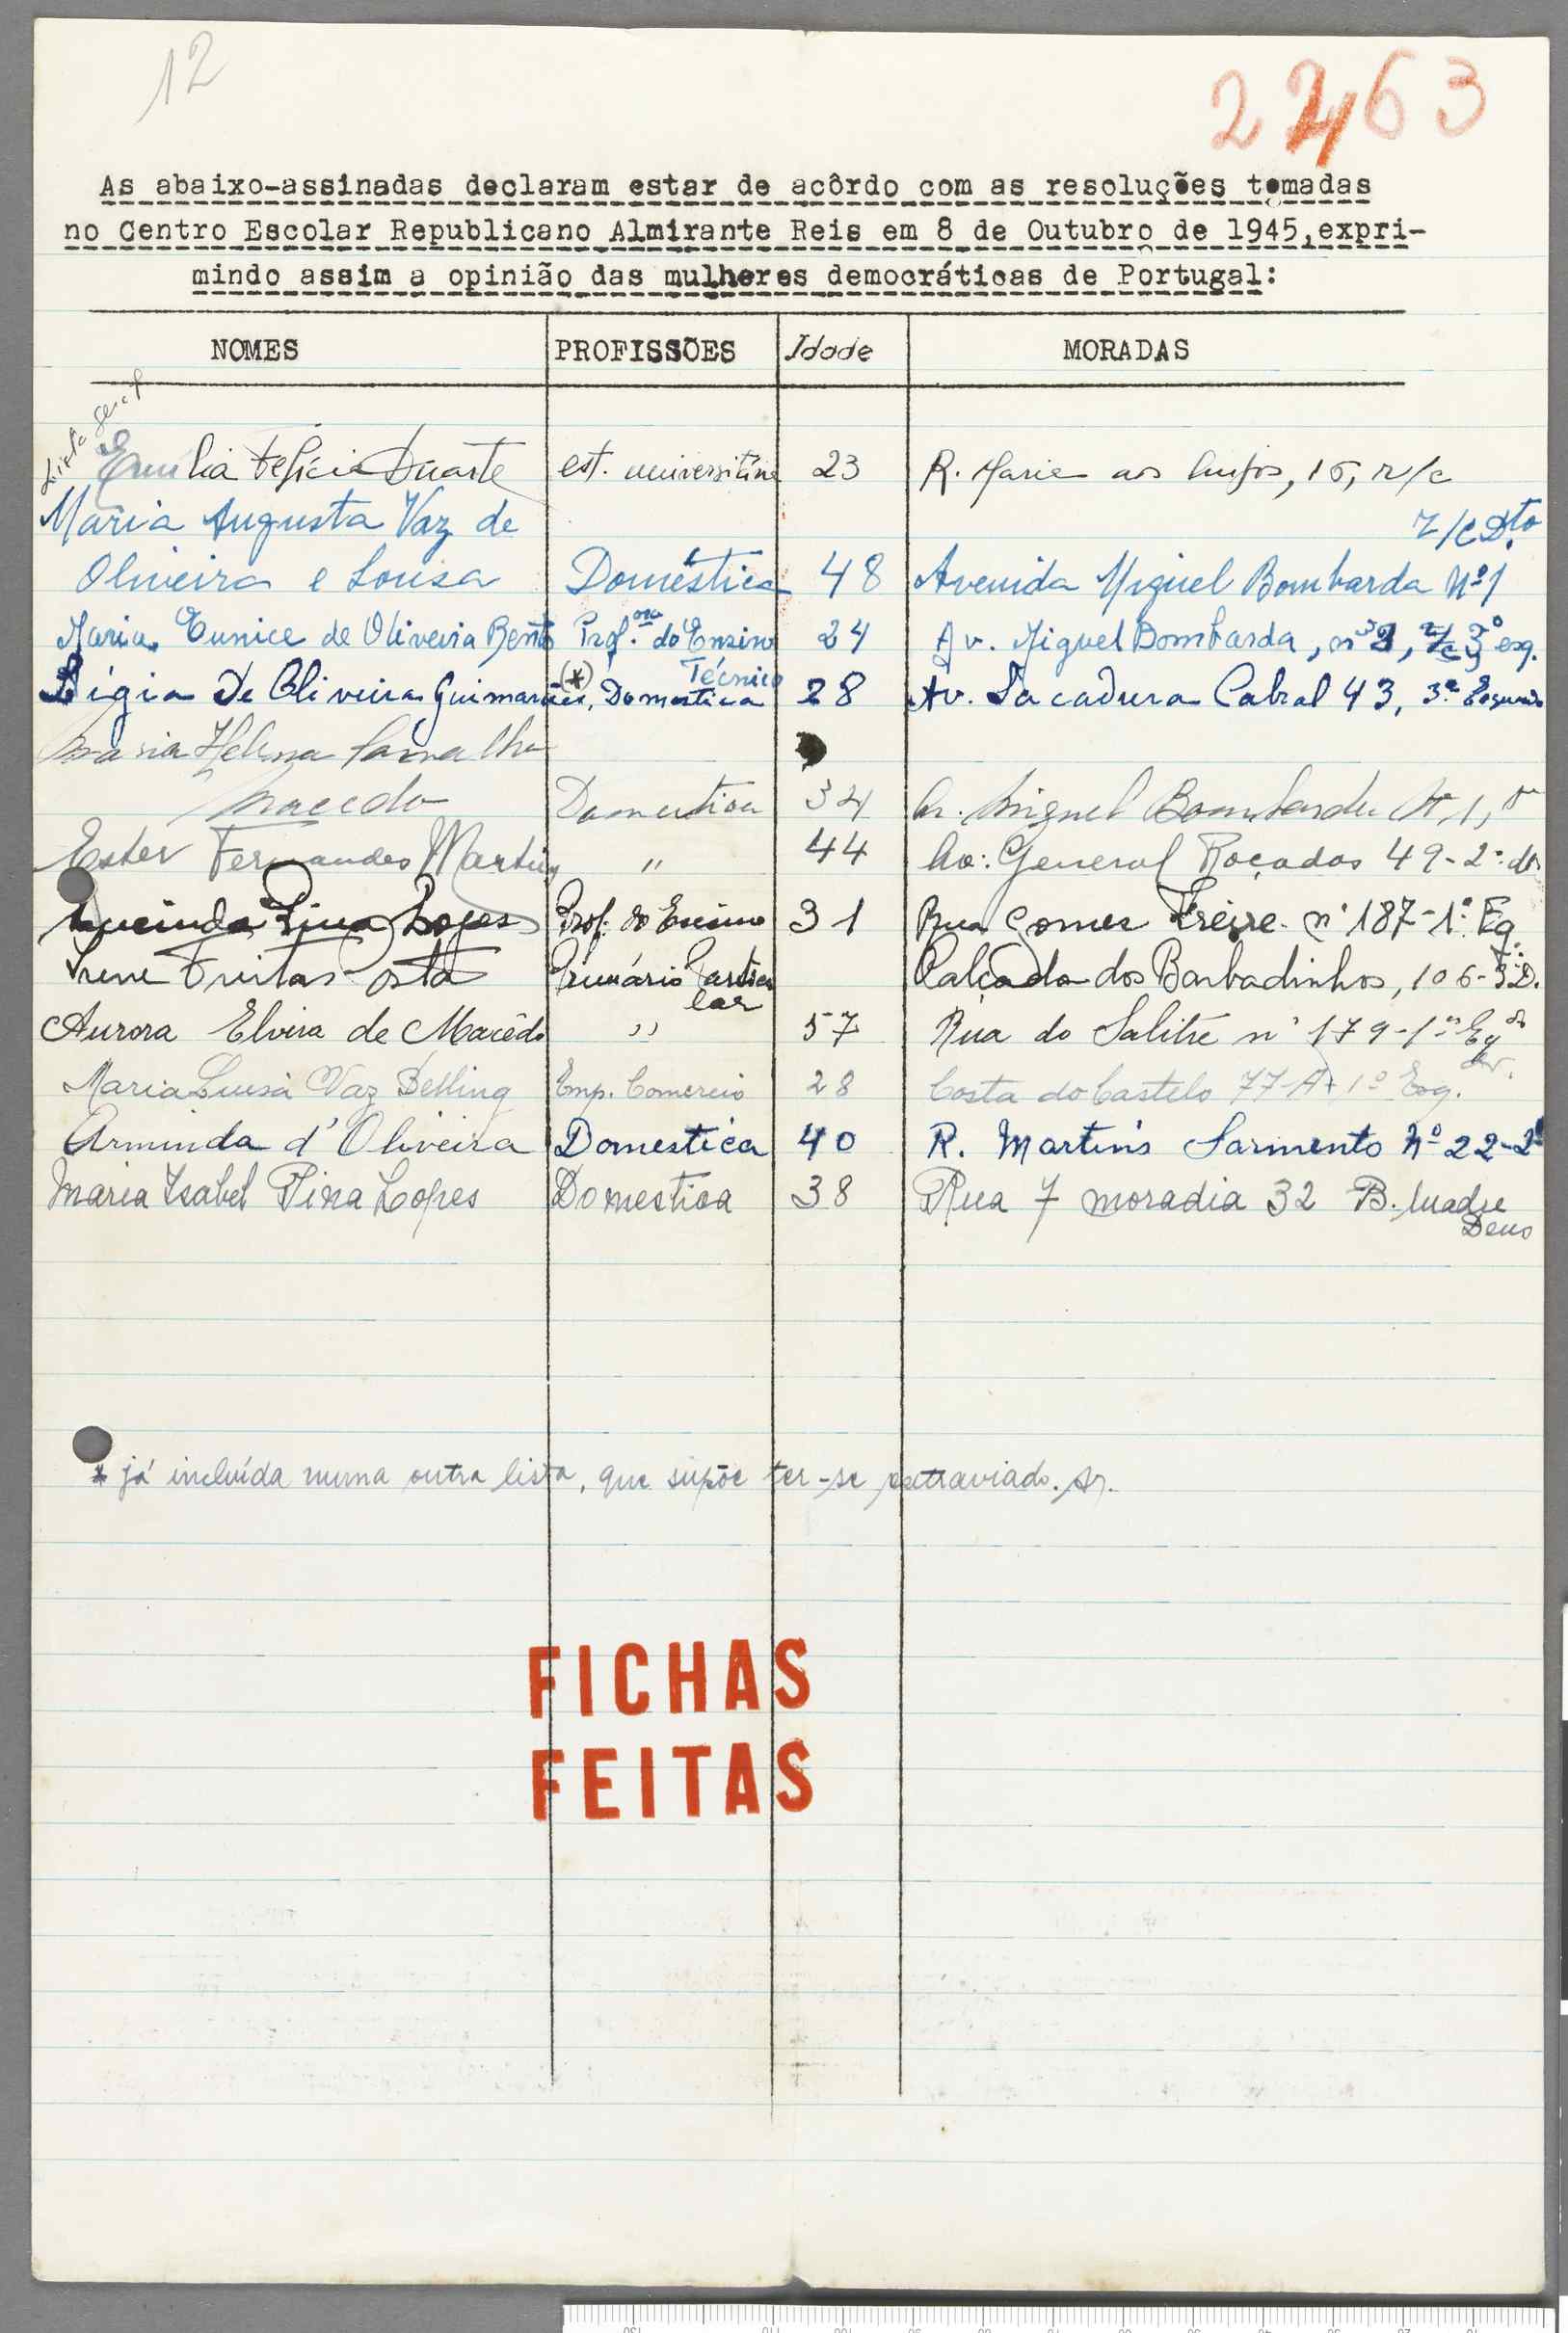 12
2263
As abaixo-assinadas declaram estar de acôrdo com as resoluções tomadas
no Centro Escolar Republicano Almirante Reis em 8 de Outubro de 1945,expri-
mindo assim a opinião das mulheres democráticas de Portugal:
NOMES PROFISSÕES Idade MORADAS
Lista geral
Emilia Felícia Duarte est. universitária 23 R. Maria aos Anjos, 15, r/c
Maria Augusta Vaz de r/c Dto
Oliveira e Sousa Doméstica 48 Avenida Miguel Bombarda Nº 1
Maria Eunice de Oliveira Bento Prof.ora do Ensino 24 Av. Miguel Bombarda, nº 3º esq.
Técnico
Lígia de Oliveira Guimarães, (*) Domestica 28 Av. Sacadura Cabral 43, 3º Esquerdo
Maria Helena Carvalho
Macedo Domestica 34 Av. Miguel Bombarda Nº 1,
Ester Fernandes Martins " 44 Av. General Roçadas 49-2º dto
Lucinda Pina Lopes Prof. do Ensino 31 Rua Gomes Freire nº 187-1º Eq.
Irene Freitas Costa Primário Particular Calçada dos Barbadinhos, 106-3º D.
Aurora Elvira de Macêdo " 57 Rua do Salitre nº 179-1º Eqdo
Maria Luisa Vaz Belling Emp. Comercio 28 Costa do Castelo 77-A 1º Esq.
Arminda d'Oliveira Domestica 40 R. Martins Sarmento Nº 22-2º
Maria Isabel Pina Lopes Domestica 38 Rua 7 moradia 32 B. Madre
Deus
* já incluída numa outra lista, que supõe ter-se extraviado.
FICHAS
FEITAS